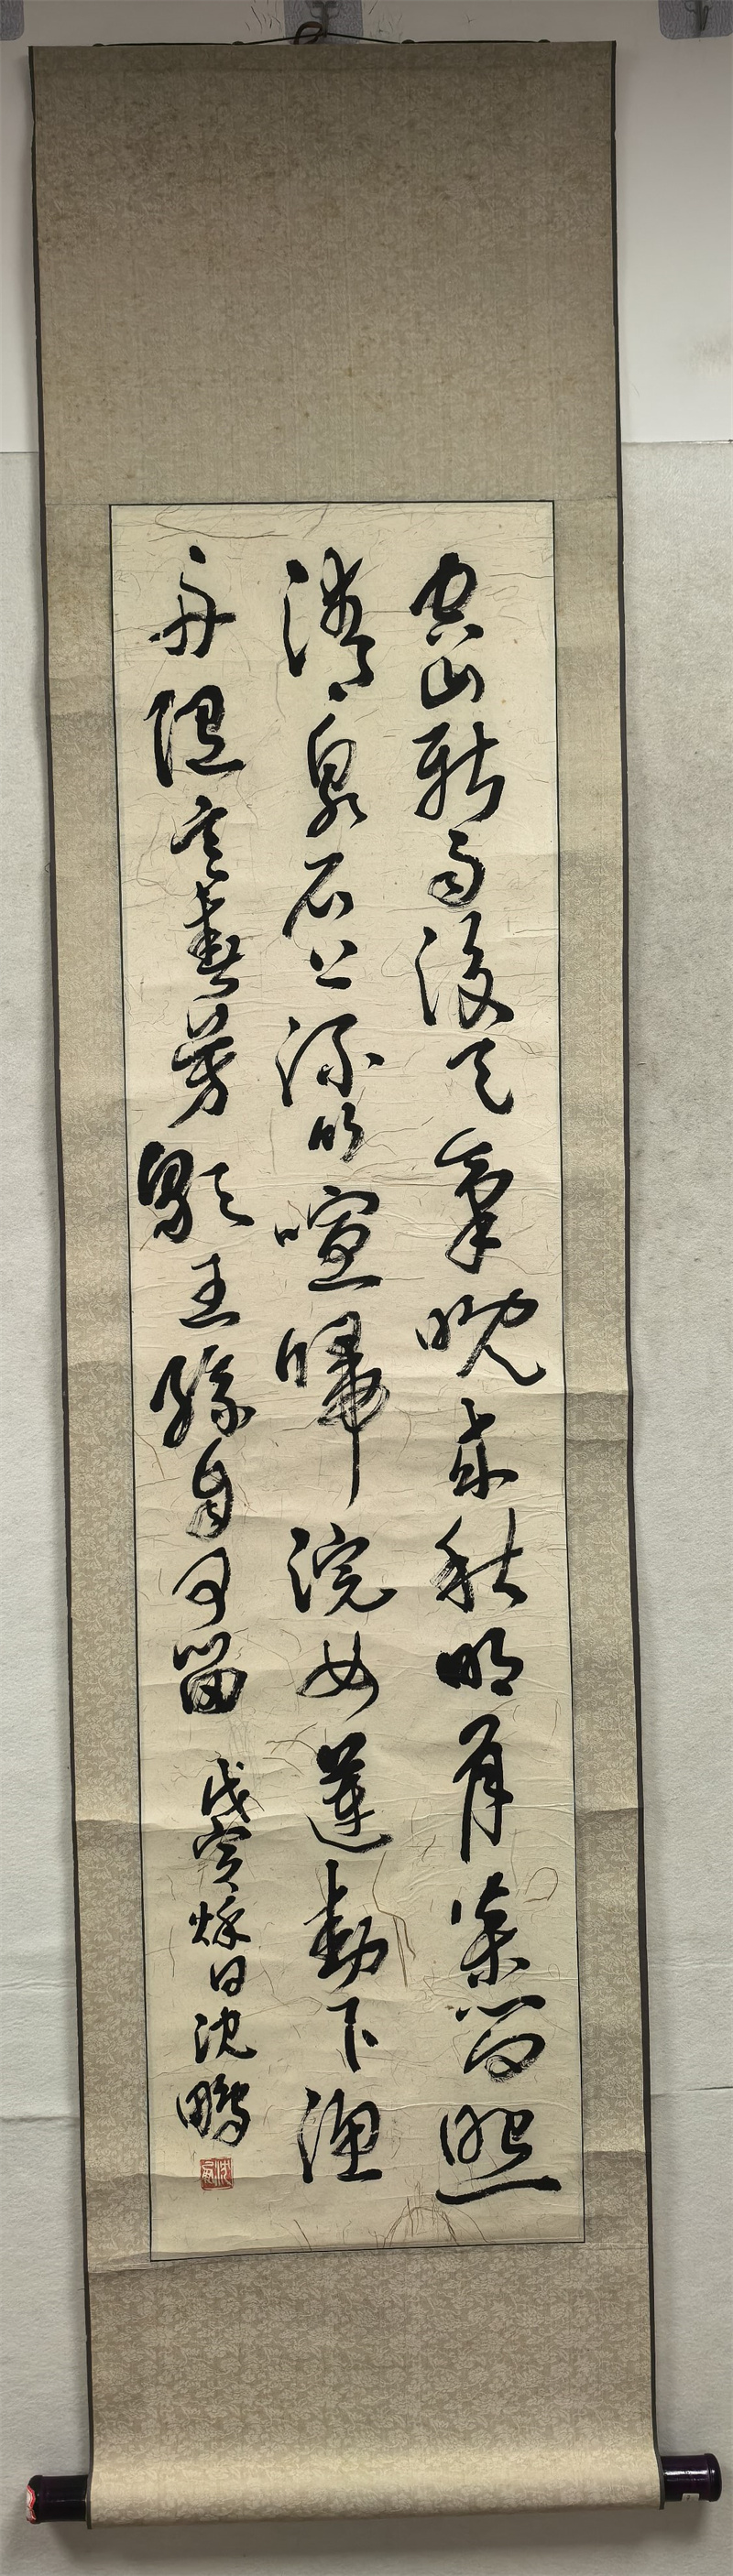 空山新雨後天氣晚來秋明月松間照
清泉石上流竹喧歸浣女蓮動下漁
舟隨意春芳歇王孫自可留 戊寅秋日沈鵬